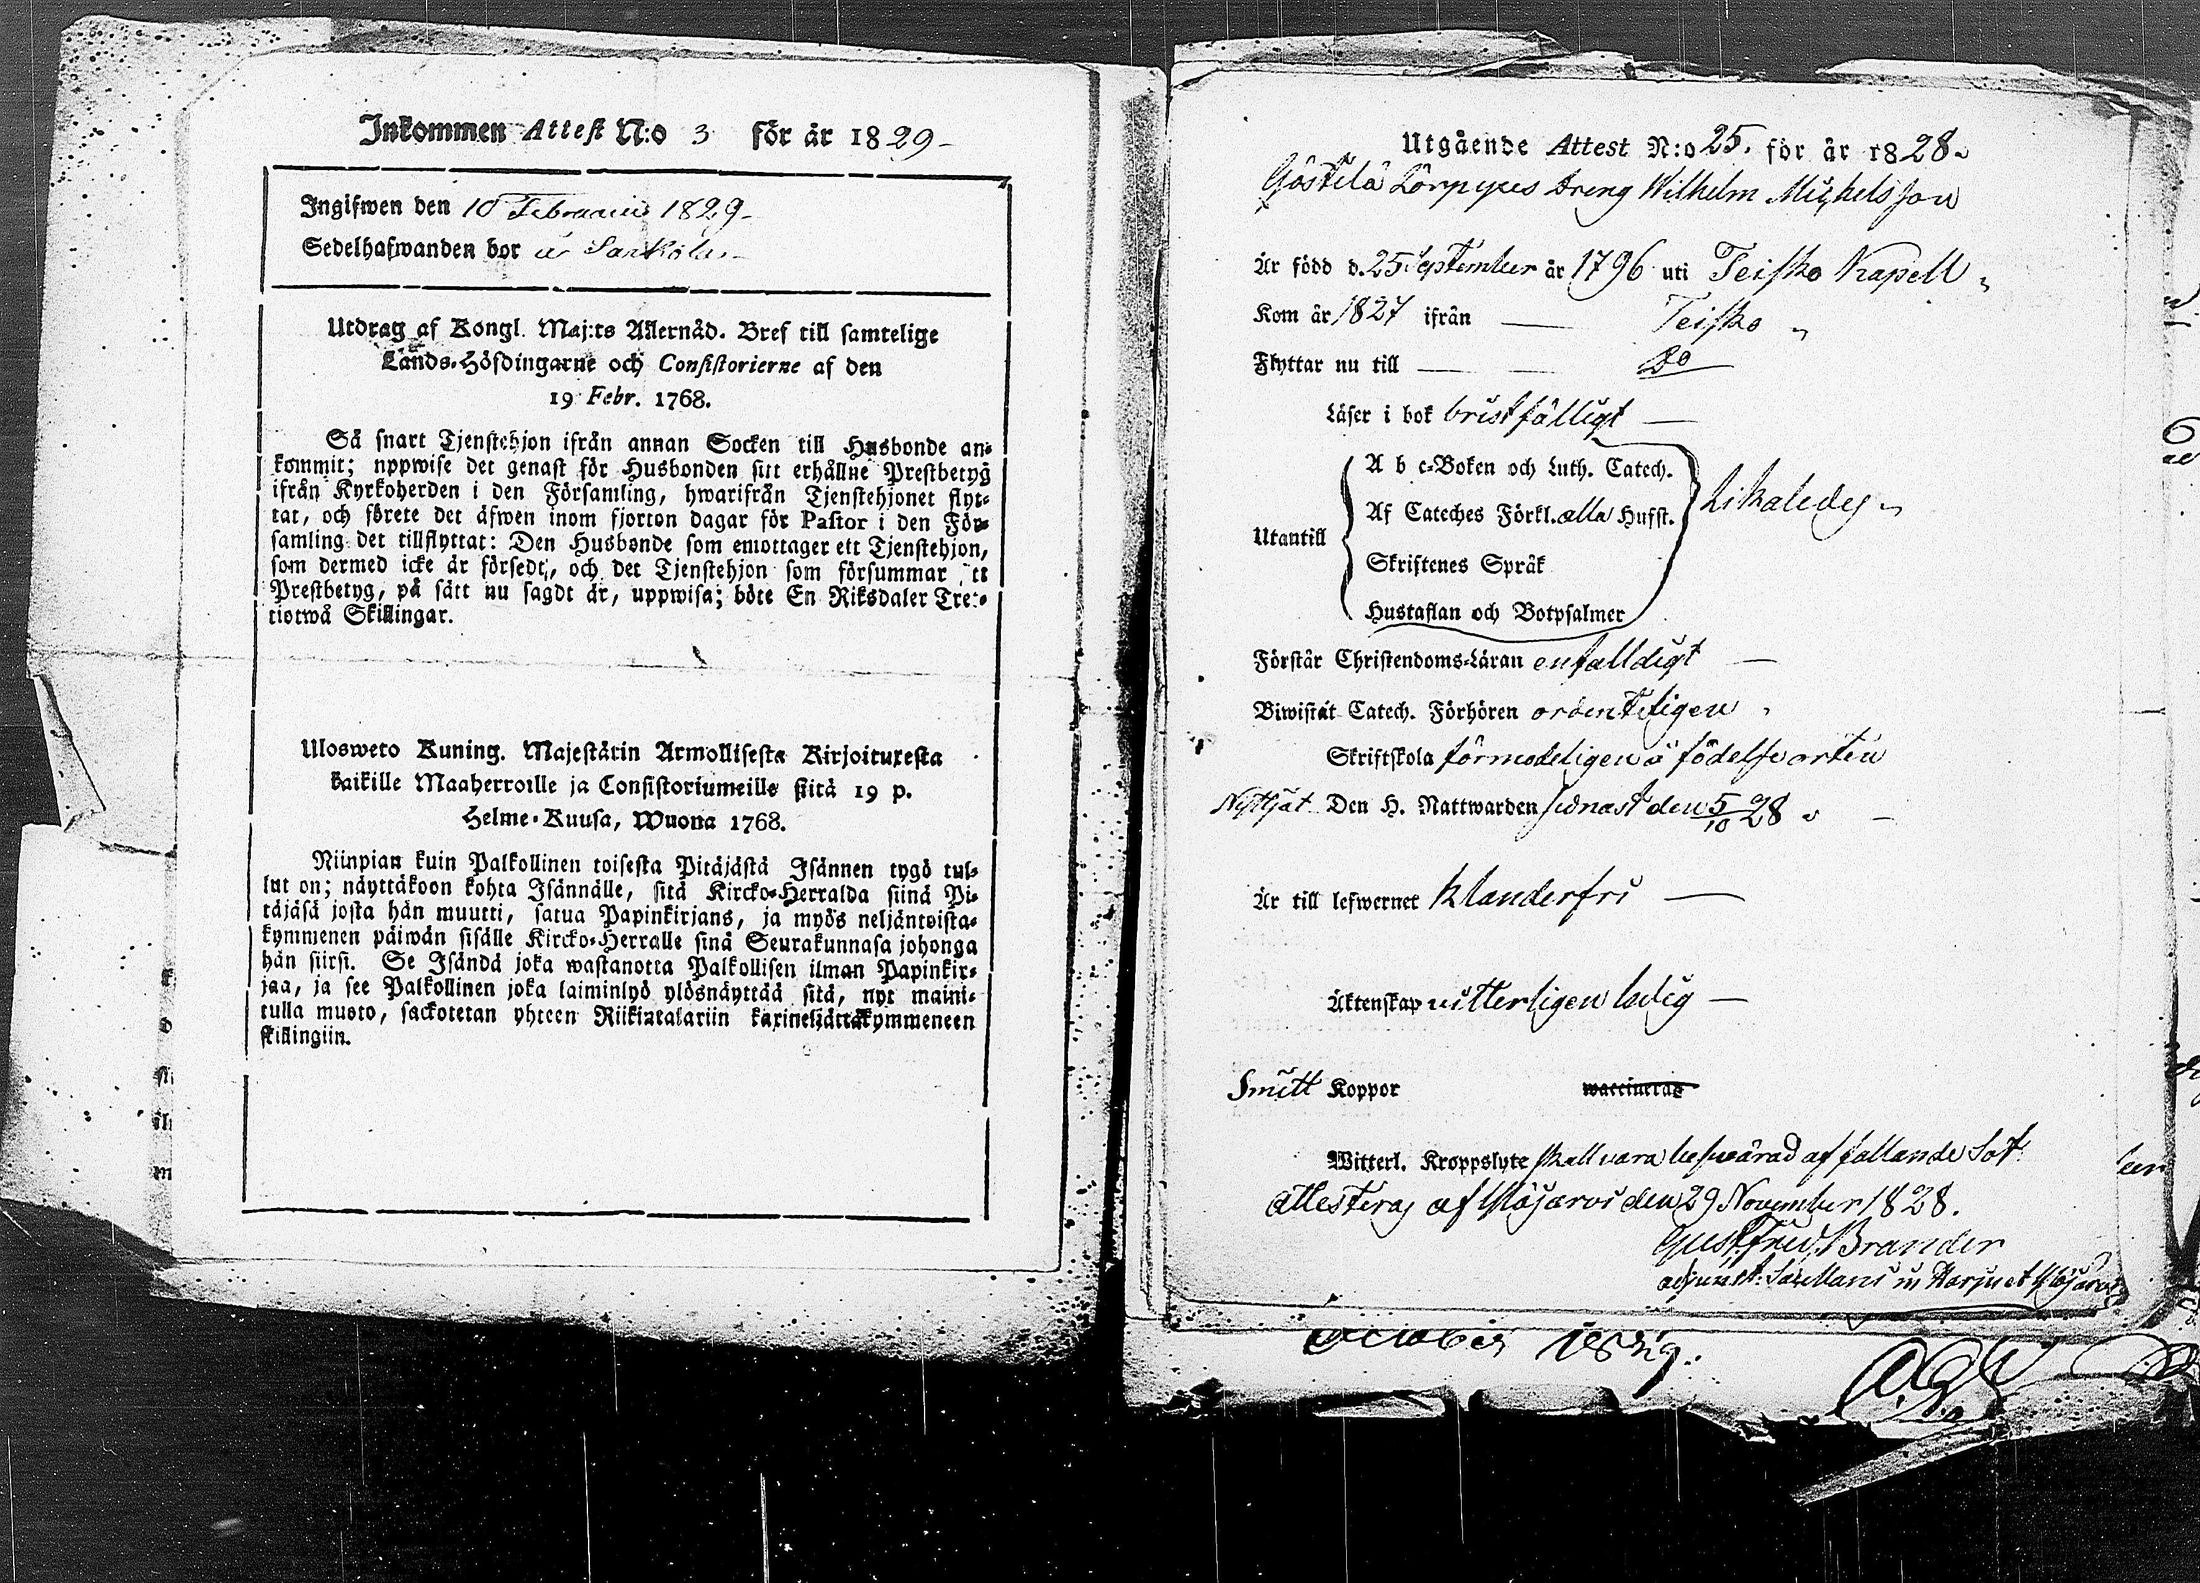 Inkommen Attest N:o 3 för år 1829
Ingifwen den 10 Februarii 1829
Sedelhafwanden bor
Utdrag af Kongl. Maj:ts Allernåd. Bref till samtelige
Lands-Höfdingarne och Consistorierne af den
19 Febr. 1768.
Så snart Tjenstehjon ifrån annan Socken till Husbonde an-
kommit; uppwise det genast för Husbonden sitt erhållne Prestbetyg
ifrån Kyrkoherden i den Församling, hwarifrån Tjenstehjonet flyt-
tat, och förete det äfwen inom fjorton dagar för Pastor i den För-
samling det tillflyttat: Den Husbonde som emottager ett Tjenstehjon,
som dermed icke är försedt, och det Tjenstehjon som försummar tt
Prestbetyg, på sätt nu sagdt är, uppwisa; böte En Riksdaler Tret-
tiotwå Skillingar.
Ulosweto Kuning. Majestätin Armollisesta Kirjoituxesta
kaikille Maaherroille ja Consistoriumeille siitä 19 p.
Helme-Kuusa, Wuona 1768.
Niinpian kuin Palkollinen toisesta Pitäjästä Isännen tygö tul-
lut on; näyttäkoon kohta Isännälle, sitä Kircko-Herralda siinä Pi-
täjäsä josta hän muutti, satua Papinkirjans, ja myös neljäntoista-
kymmenen päiwän sisälle Kircko-Herralle sinä Seurakunnasa johonga
hän siirsi. Se Isändä joka wastanotta Palkollisen ilman Papinkir-
jaa, ja see Palkollinen joka laiminlyö ylösnäyttää sitä, nyt maini-
tulla muoto, sackotetan yhteen Riikintalariin kaxineljättäkymmeneen
skillingiin.
Utgående Attest N:o 25. för år 1828
Göstilä Törppyes dreng Wilhelm Michelsson
År född d. 25 September år 1796 uti Teisko Kapell
Kom år 1827 ifrån Teisko
Flyttar nu till do
Läser i bok bristfälligt
A b c-Boken och Luth. Catech.
Af Cateches Förkl. alla Hufst.
Utantill
Likaledes
Skriftenes Språk
Hustaflan och Botpsalmer
Förstår Christendoms-Läran enfalldigt
Biwistat Catech. Förhören ordenteligen
Skriftskola förmodeligen å födelseorten
Nyttjat Den H. Nattwarden sednast den 5/10 28
År till lefwernet klanderfri
Äktenskap witterligen ledig
Smitt Koppor waccinerad
Witterl. Kroppslyte skall vara beswärad af fallande Sot
Attesteras af Ylöjärvi den 29 November 1828.
Gust. Fred. Brander
adjunkt:
October 1829.